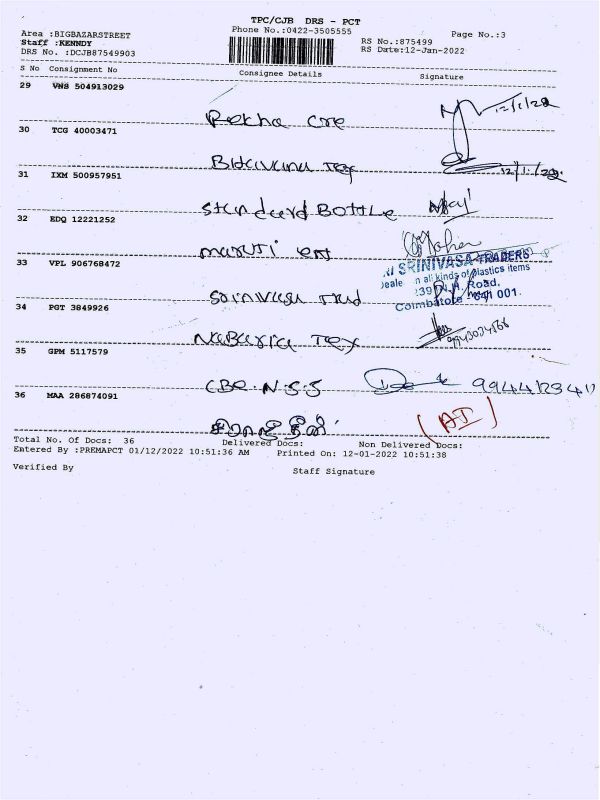 TPC/CJB DRS - PCT
Area :BIGBAZARSTREET Phone No.:0422-3505555 Page No.:3
Staff :KENNDY RS No.:875499
DRS No. :DCJB87549903 RS Date:12-Jan-2022
S No Consignment No Consignee Details Signature
29 VNS 504913029
Rekha Cre 12/1/22
30 TCG 40003471
Tex 12/1/22
31 IXM 500957951
Standard BOTTLE
32 EDQ 12221252
maruti ent
33 VPL 906768472
SRINIVASA TRADERS
in all kinds of plastics items
39, N.H. Road,
Coimbatore - 641 001.
Srinivasa Trad
34 PGT 3849926
Tex
35 GPM 5117579
CBE. N.S.S
36 MAA 286874091
(AI)
Total No. Of Docs: 36 Delivered Docs: Non Delivered Docs:
Entered By :PREMAPCT 01/12/2022 10:51:36 AM Printed On: 12-01-2022 10:51:38
Verified By Staff Signature